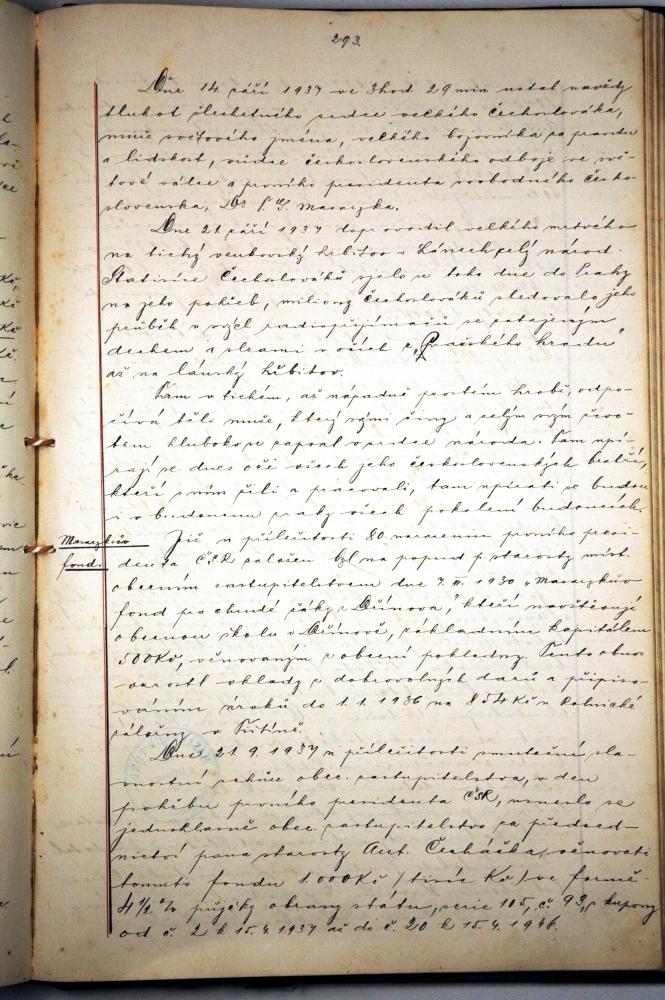 293.
Dne 14 září 1937 ve 3 hod. 29 min ustal navždy
tlukot šlechetného srdce velkého Čechoslováka,
muže světového jména, velkého bojovníka za pravdu
a lidskost, vůdce československého odboje ve svě-
tové válce a prvního presidenta svobodného Česko-
slovenska, Dr T. G. Masaryka.
Dne 21 září 1937 doprovodil velkého mrtvého
na tichý venkovský hřbitov v Lánech celý národ.
Statisíce Čechoslováků sjelo se toho dne do Prahy
na jeho pohřeb, miliony Čechoslováků sledovalo jeho
průběh u svých radiopřijimačů se zatajeným
dechem a slzami v očích z „Pražského hradu"
až na lánský hřbitov.
Tam v tichém, až nápadně prostém hrobě, odpo-
čívá tělo muže, který svými činy a celým svým živo-
tem hluboko se zapsal v srdce národa. Tam upí-
rají se dnes oči všech jeho československých bratří,
kteří s ním žili a pracovali, tam upírati se budou
i v budoucnu zraky všech pokolení budoucích.
Masarykův
fond.
Již u příležitosti 80. narozenin prvního presi-
denta ČSR založen byl na popud p. starosty míst.
obecním zastupitelstvem dne 7. III. 1930 „Masarykův
fond pro chudé žáky z , kteří navštěvují
obecnou školu v , základním kapitálem
500 Kč, věnovaným z obecní pokladny. Tento obnos
vzrostl vklady z dobrovolných darů a připiso-
váním úroků do 1. 1. 1936 na 854 Kč u Rolnické
záložny v .
Dne 21. 9. 1937 u příležitosti smuteční sla-
vnostní schůze obec. zastupitelstva, v den
pohřbu prvního presidenta ČSR, usneslo se
jednohlasně obec. zastupitelstvo za předsed-
nictví pana starosty Ant. , věnovati
tomuto fondu 1.000 Kč / tisíc Kč / ve formě
4 1/2 % půjčky obrany státu, serie 105, č. 93, s kupony
od č. 2 k 15. 4. 1937 až do č. 20 k 15. 4. 1946.